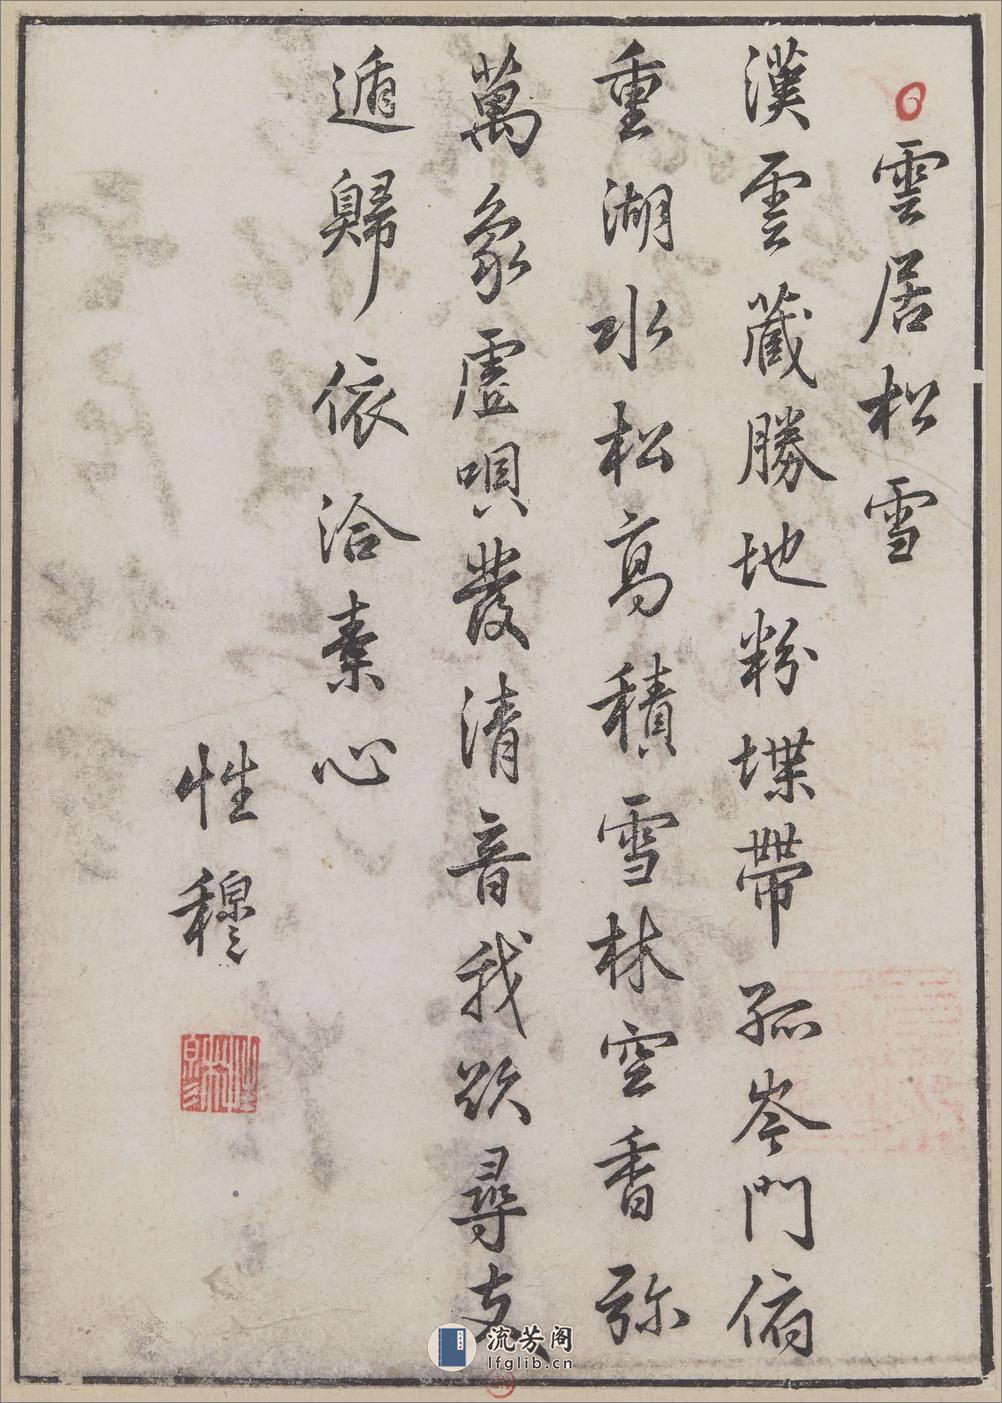 雲居松雪
漢雲藏勝地粉堞帶孤岑門俯
重湖水松高積雪林空香弥
萬象虛唄發清音我欲尋支
遁歸依洽素心
性穆
流芳阁
lfglib.cn